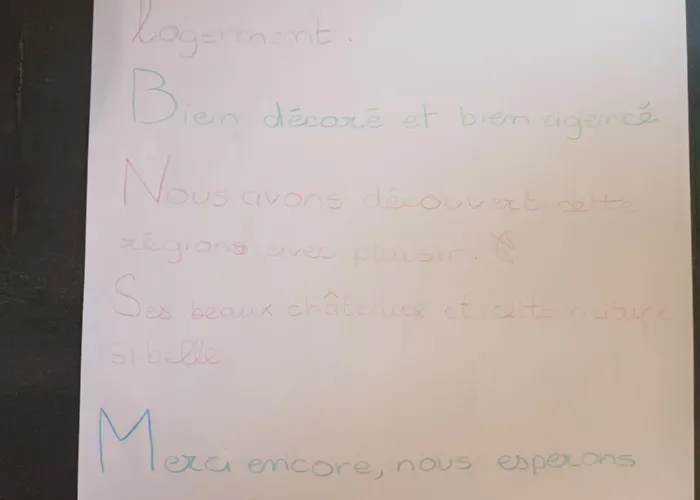 Logermont.
Bien décoré et bien agencé
Nous avons découvert cette
régions avec plaisir.
Ses beaux châteaux et cette nature
si belle
Merci encore, nous esperons